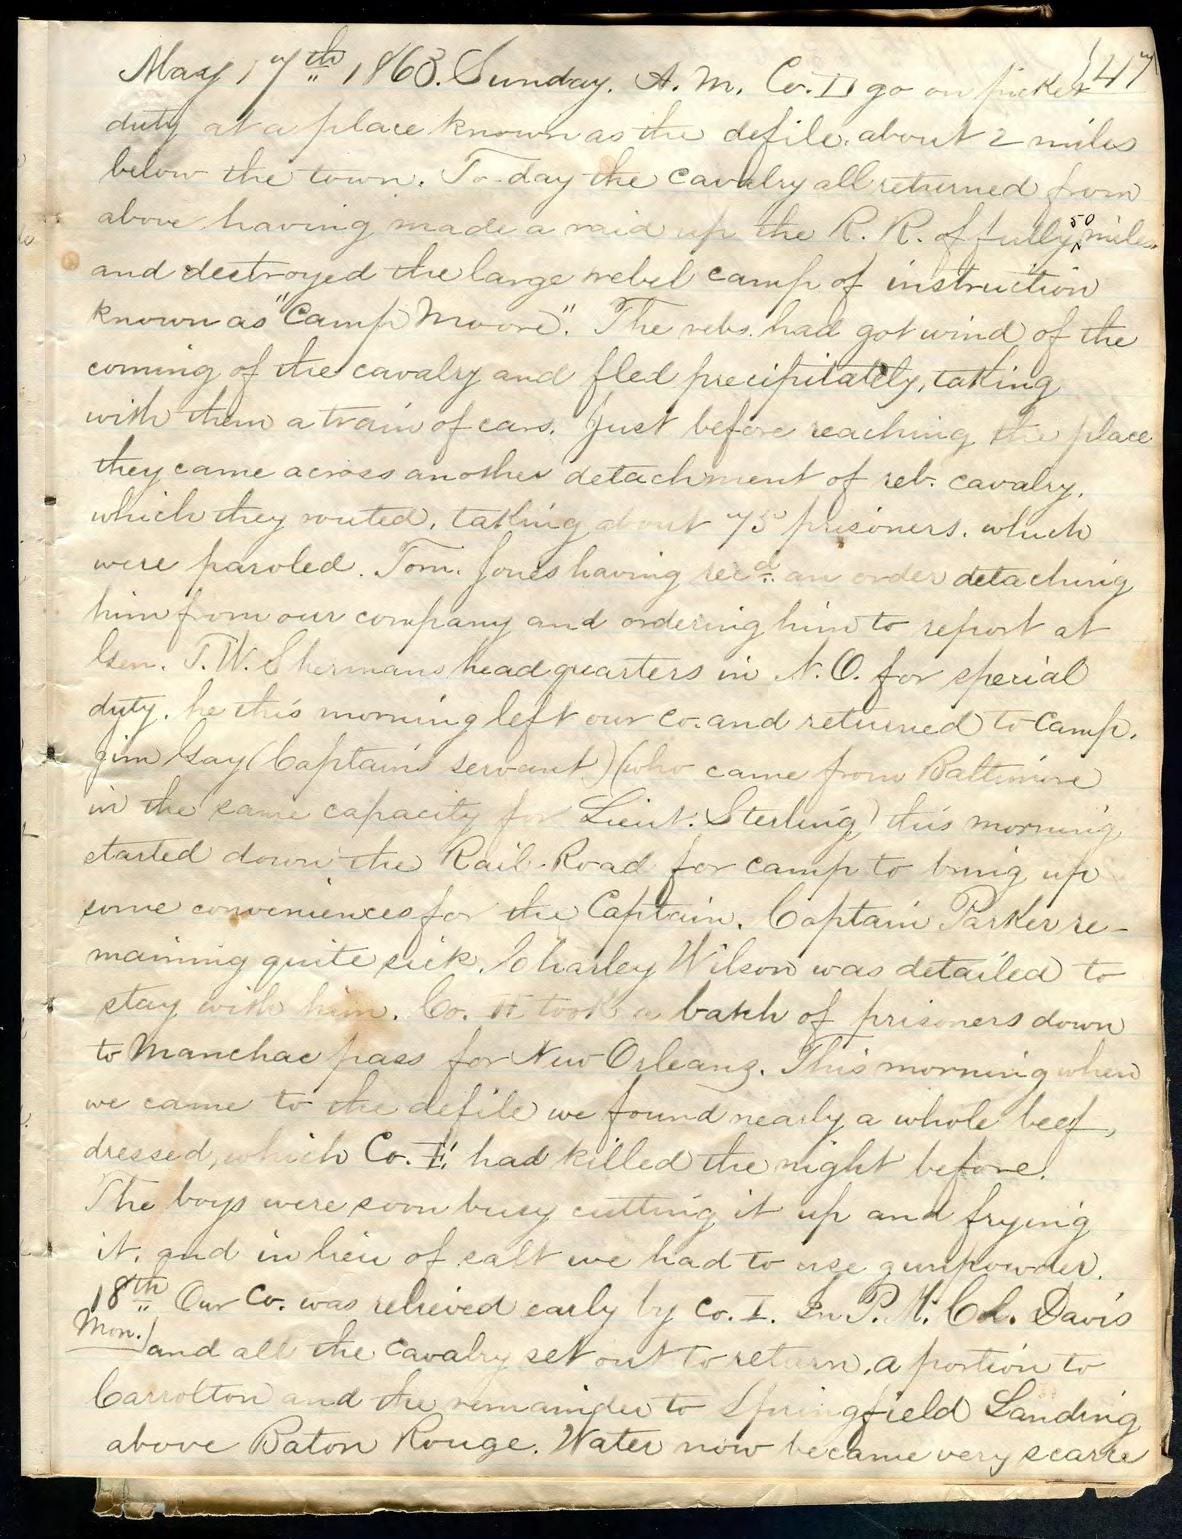 147
May 17th 1863. Sunday. A.M. Co. D go on picket
duty at a place known as the defile, about 2 miles
below the town. To-day the cavalry all returned from
above having made a raid up the R.R. of fully 50 miles
and destroyed the large rebel camp of instruction
known as "Camp Moore". The rebs. had got wind of the
coming of the cavalry and fled precipitately, taking
with them a train of cars. Just before reaching the place
they came across another detachment of reb. cavalry.
which they routed, taking about 75 prisoners. which
were paroled. Tom. Jones having recd. an order detaching
him from our company and ordering him to report at
Gen. T.W. Shermans headquarters in N.O. for special
duty. he this morning left our co. and returned to camp.
Jim Gay (Captains servant) (who came from Baltimore
in the same capacity for Lieut. Sterling) this morning
started down the Rail-Road for camp to bring up
some conveniences for the Captain. Captain Parker re-
maining quite sick. Charley Wilson was detailed to
stay with him. Co. K took a batch of prisoners down
to Manchac pass for New Orleans. This morning when
we came to the defile we found nearly a whole beef,
dressed, which Co. E. had killed the night before.
The boys were soon busy cutting it up and frying
it. and in lieu of salt we had to use gunpowder.
18th Our Co. was relieved early by Co. I. In P.M. Col. Davis
Mon.) and all the cavalry set out to return. a portion to
Carrolton and the remainder to Springfield Landing
above Baton Rouge. Water now became very scarce